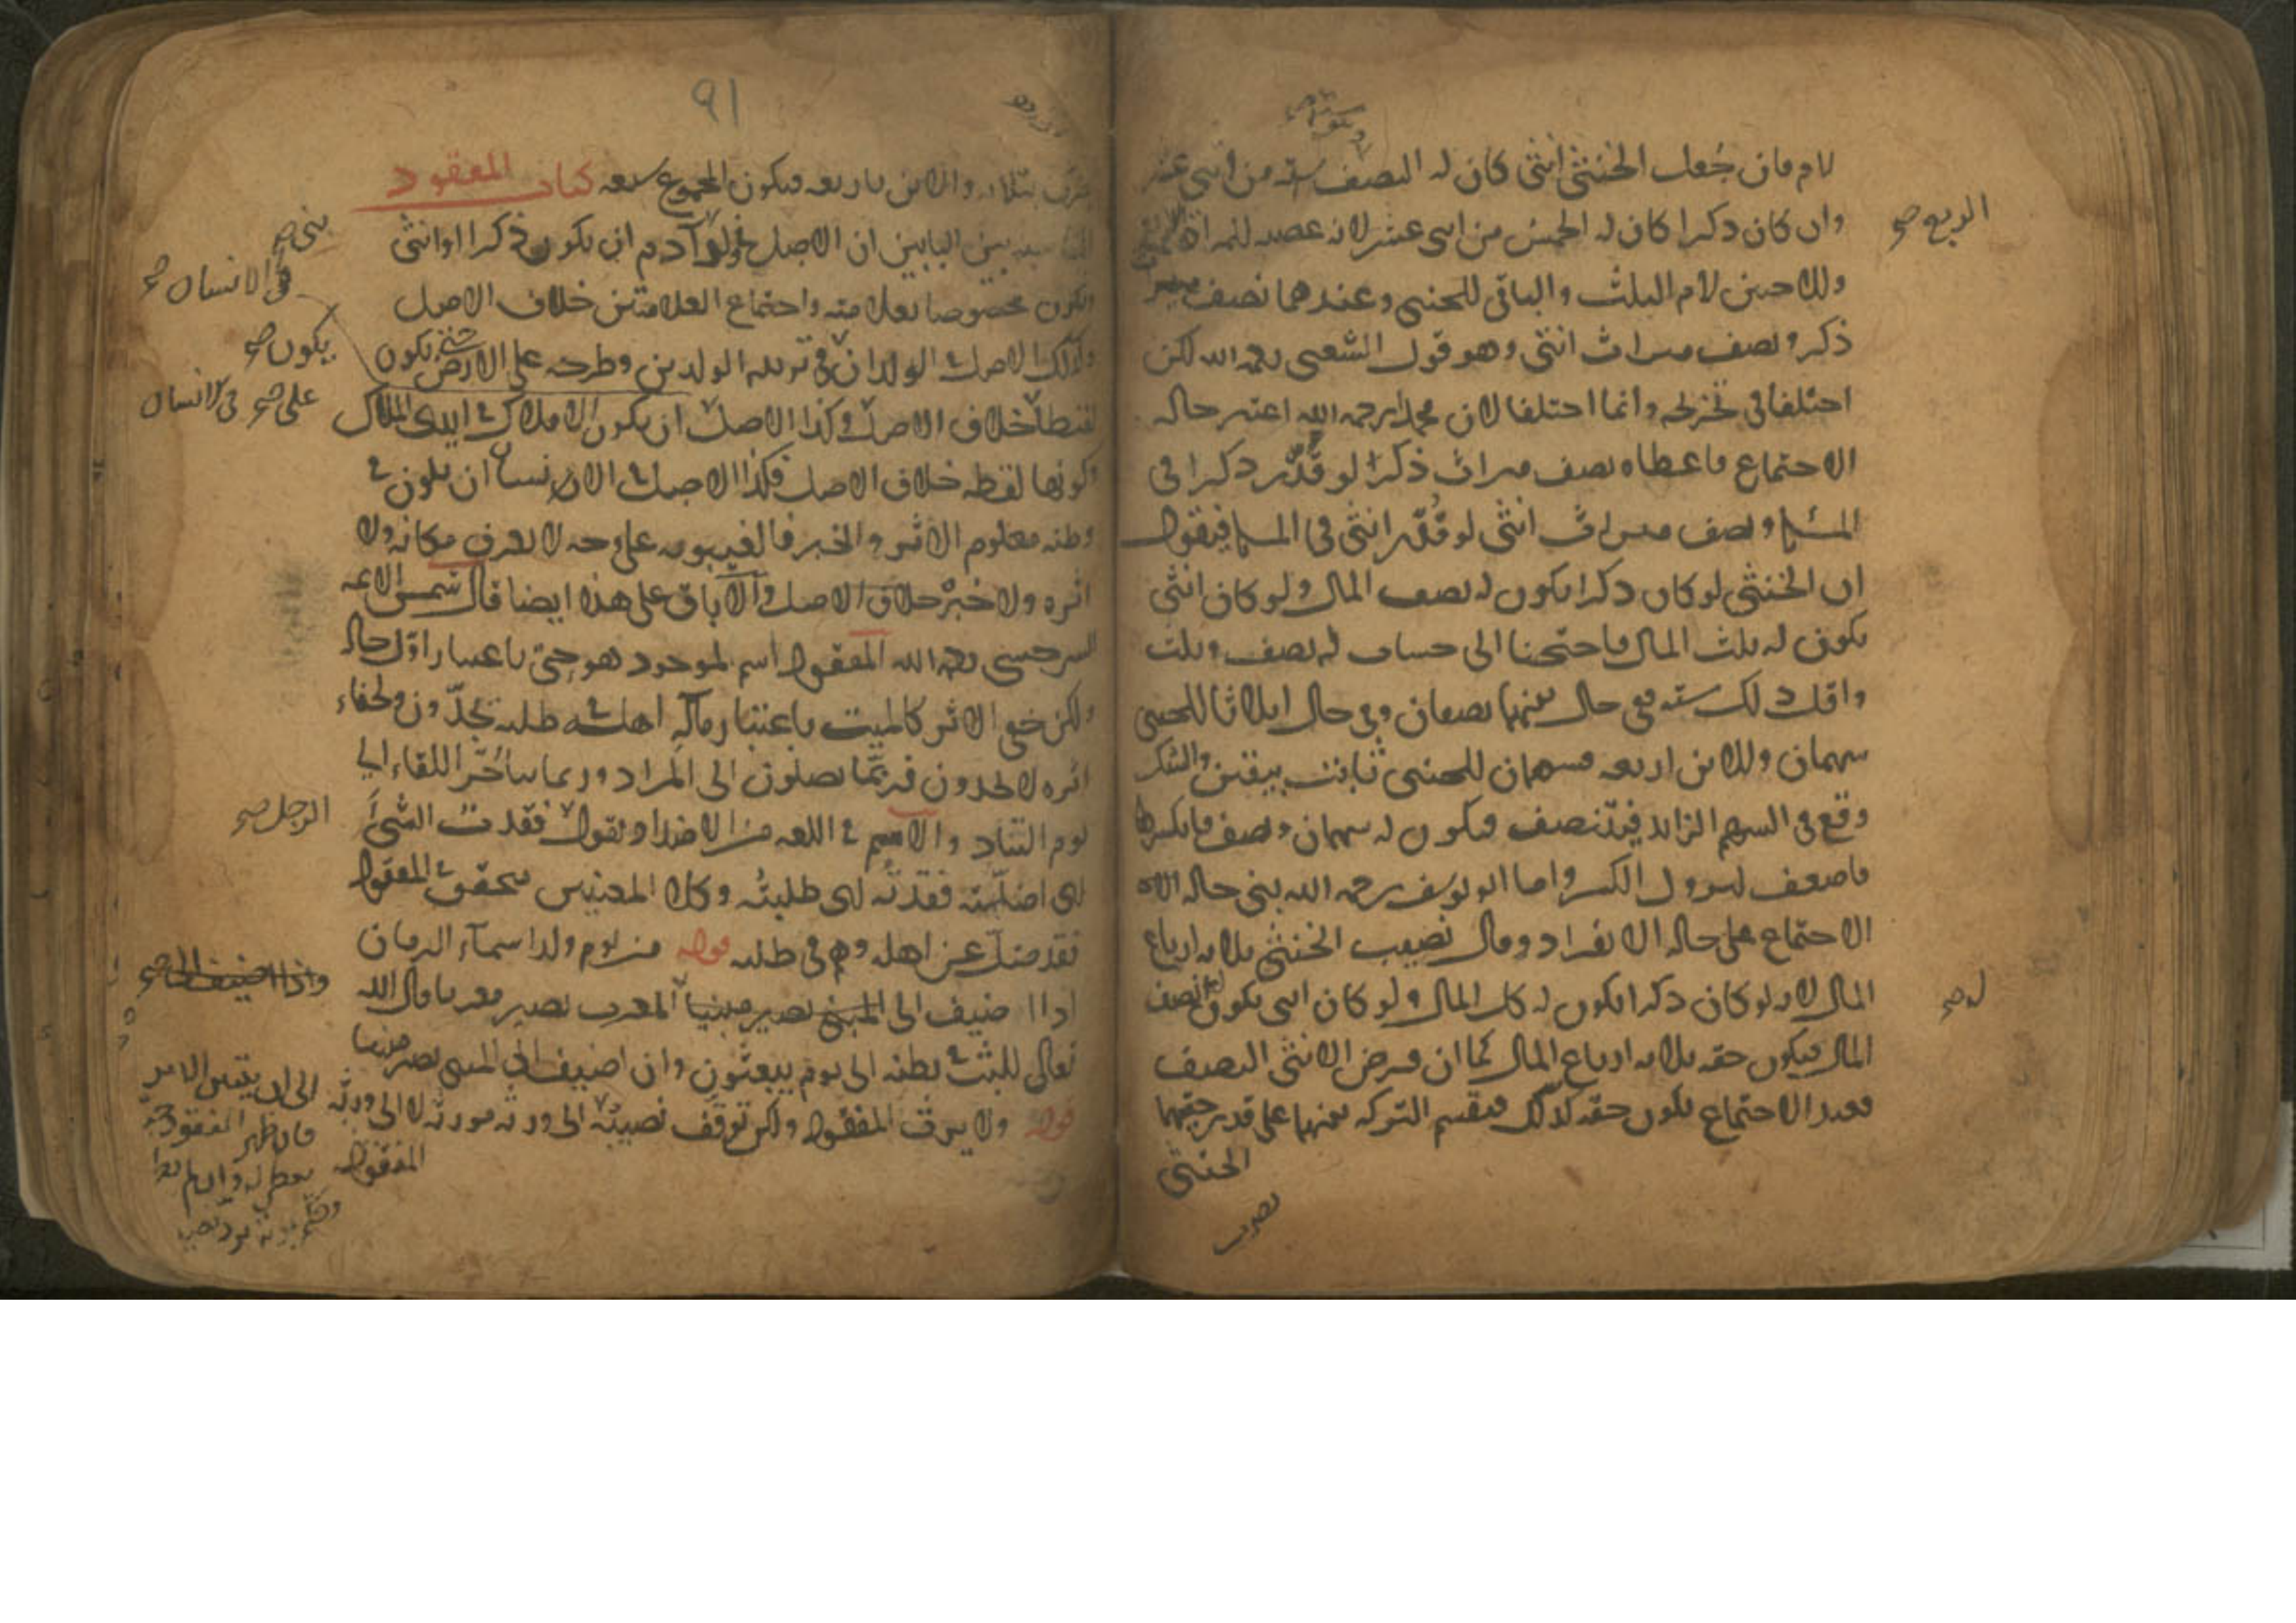 لام فان جُعل الخنثى انثى كان له النصف ستة من اثنى عشر
وان كان ذكرا كان له الخمس من اثنى عشر لانه عصبة للمراة
الربع صح
وللاخين لام الثلث والباقى للخنثى وعندهما نصف ميراث
ذكر ونصف ميراث انثى وهو قول الشعبى رحمه الله لكن
اختلفا فى تخريجه وانما اختلفا لان محمدا رحمه الله اعتبر حالة
الاحتماع فاعطاه نصف ميراث ذكر لو قُدّر ذكرا فى
المسئلة ونصف ميراث انثى لو قُدّر انثى فى المسئلة فيقول
ان الخنثى لو كان ذكرا يكون له نصف المال ولو كان انثى
يكون له ثلث المال فاحتجنا الى حساب له نصف وثلث
واقل ذلك ستة ففى حال بينهما نصفان وفى حال اثلاثا للخنثى
سهمان وللابن اربعة فسهمان للخنثى ثابت بيقين والشك
وقع فى السهم الزايد فيتنصف فيكون له سهمان ونصف فانكسر
فاضعف ليزول الكسر واما ابو يوسف رحمه الله بنى حالة
الاحتماع على حالة الانفراد وقال نصيب الخنثى ثلاثة ارباع
المال لانه لو كان ذكرا يكون له كل المال ولو كان انثى يكون نصف
له صح
المال فيكون حقه ثلاثة ارباع المال كما ان فرض الانثى النصف
فعند الاحتماع يكون حقه كذلك فيقسم التركة بينهما على قدر حقهما
الخنثى
يضرب
91
يضرب بثلاثة والابن باربعة فيكون المجموع سبعة كتاب المفقود
المناسبة بين البابين ان الاصل فى ولد آدم ان يكون ذكرا او انثى
بنى صح
فى الانسان صح
ويكون مخصوصا بعلامته واحتماع العلامتين خلاف الاصل
يكون صح
وكذلك الاصل فى الولد ان فى تربية الوالدين وطرحه على الارض حتى يكون
على صح فى الانسان
لقيطا خلاف الاصل وكذا الاصل ان يكون الاملاك فى ايدى الملاك
وكونها لقطة خلاف الاصل فكذا الاصل فى الانسان ان يكون فى
وطنه معلوم الاثر والخبر فالغيبوبة على وجه لا يعرف مكانه ولا
اثره ولا خبره خلاف الاصل والاباق على هذا ايضا قال شمس الائمة
السرخسى رحمه الله المفقود اسم لموجود هو حىّ باعتبار اوّل حاله
ولكن خفى الاثر كالميت باعتبار مآله اهله فى طلبه يجدّون ولخفاء
اثره لا يجدون فربّما يصلون الى المراد وربما يتأخّر اللقاء الى
الرجل صح
يوم التناد والاسم فى اللغة من الاضداد ويقول فقدت الشئَ
اى اضللته فقدتُه اى طلبتُه وكلا المعنيين يتحقق فى المفقود
فقد ضلّ عن اهله وهم فى طلبه قوله من يوم ولد اسماء الزمان
واذا اضيف الى صح
اذا اضيف الى المبنى يصير مبنيا المعرب يصير معربا قال الله
تعالى للبث فى بطنه الى يوم يبعثون وان اضيف الى المبنى يصير مبنيا
قوله ولا يرث المفقود ولكن توقف نصيبه الى ورثة مورثه لا الى ورثة
المفقود
الى ان يتبين الامر
فان ظهر المفقود